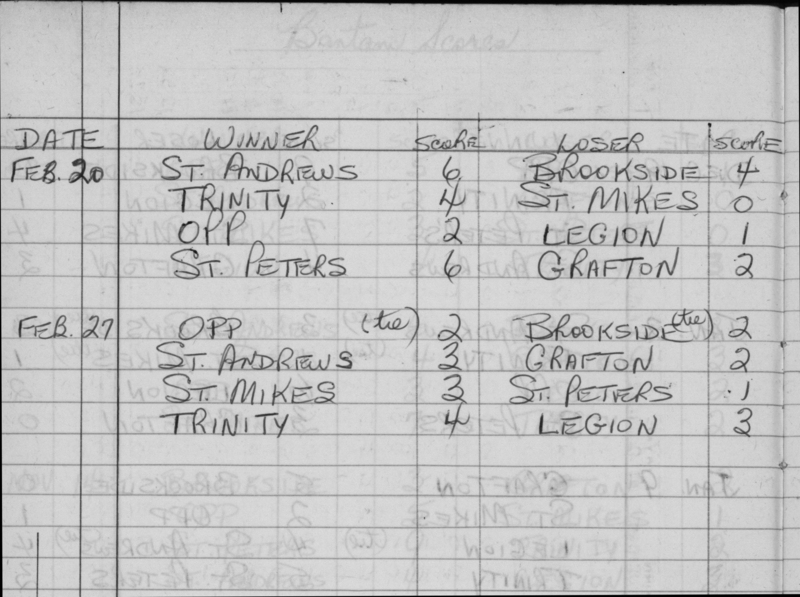 Bantam Scores
DATE WINNER SCORE LOSER SCORE
FEB. 20 ST. ANDREWS 6 BROOKSIDE 4
TRINITY 4 ST. MIKES 0
OPP 2 LEGION 1
ST. PETERS 6 GRAFTON 2
FEB. 27 OPP (tie) 2 BROOKSIDE (tie) 2
ST. ANDREWS 3 GRAFTON 2
ST. MIKES 3 ST. PETERS 1
TRINITY 4 LEGION 3